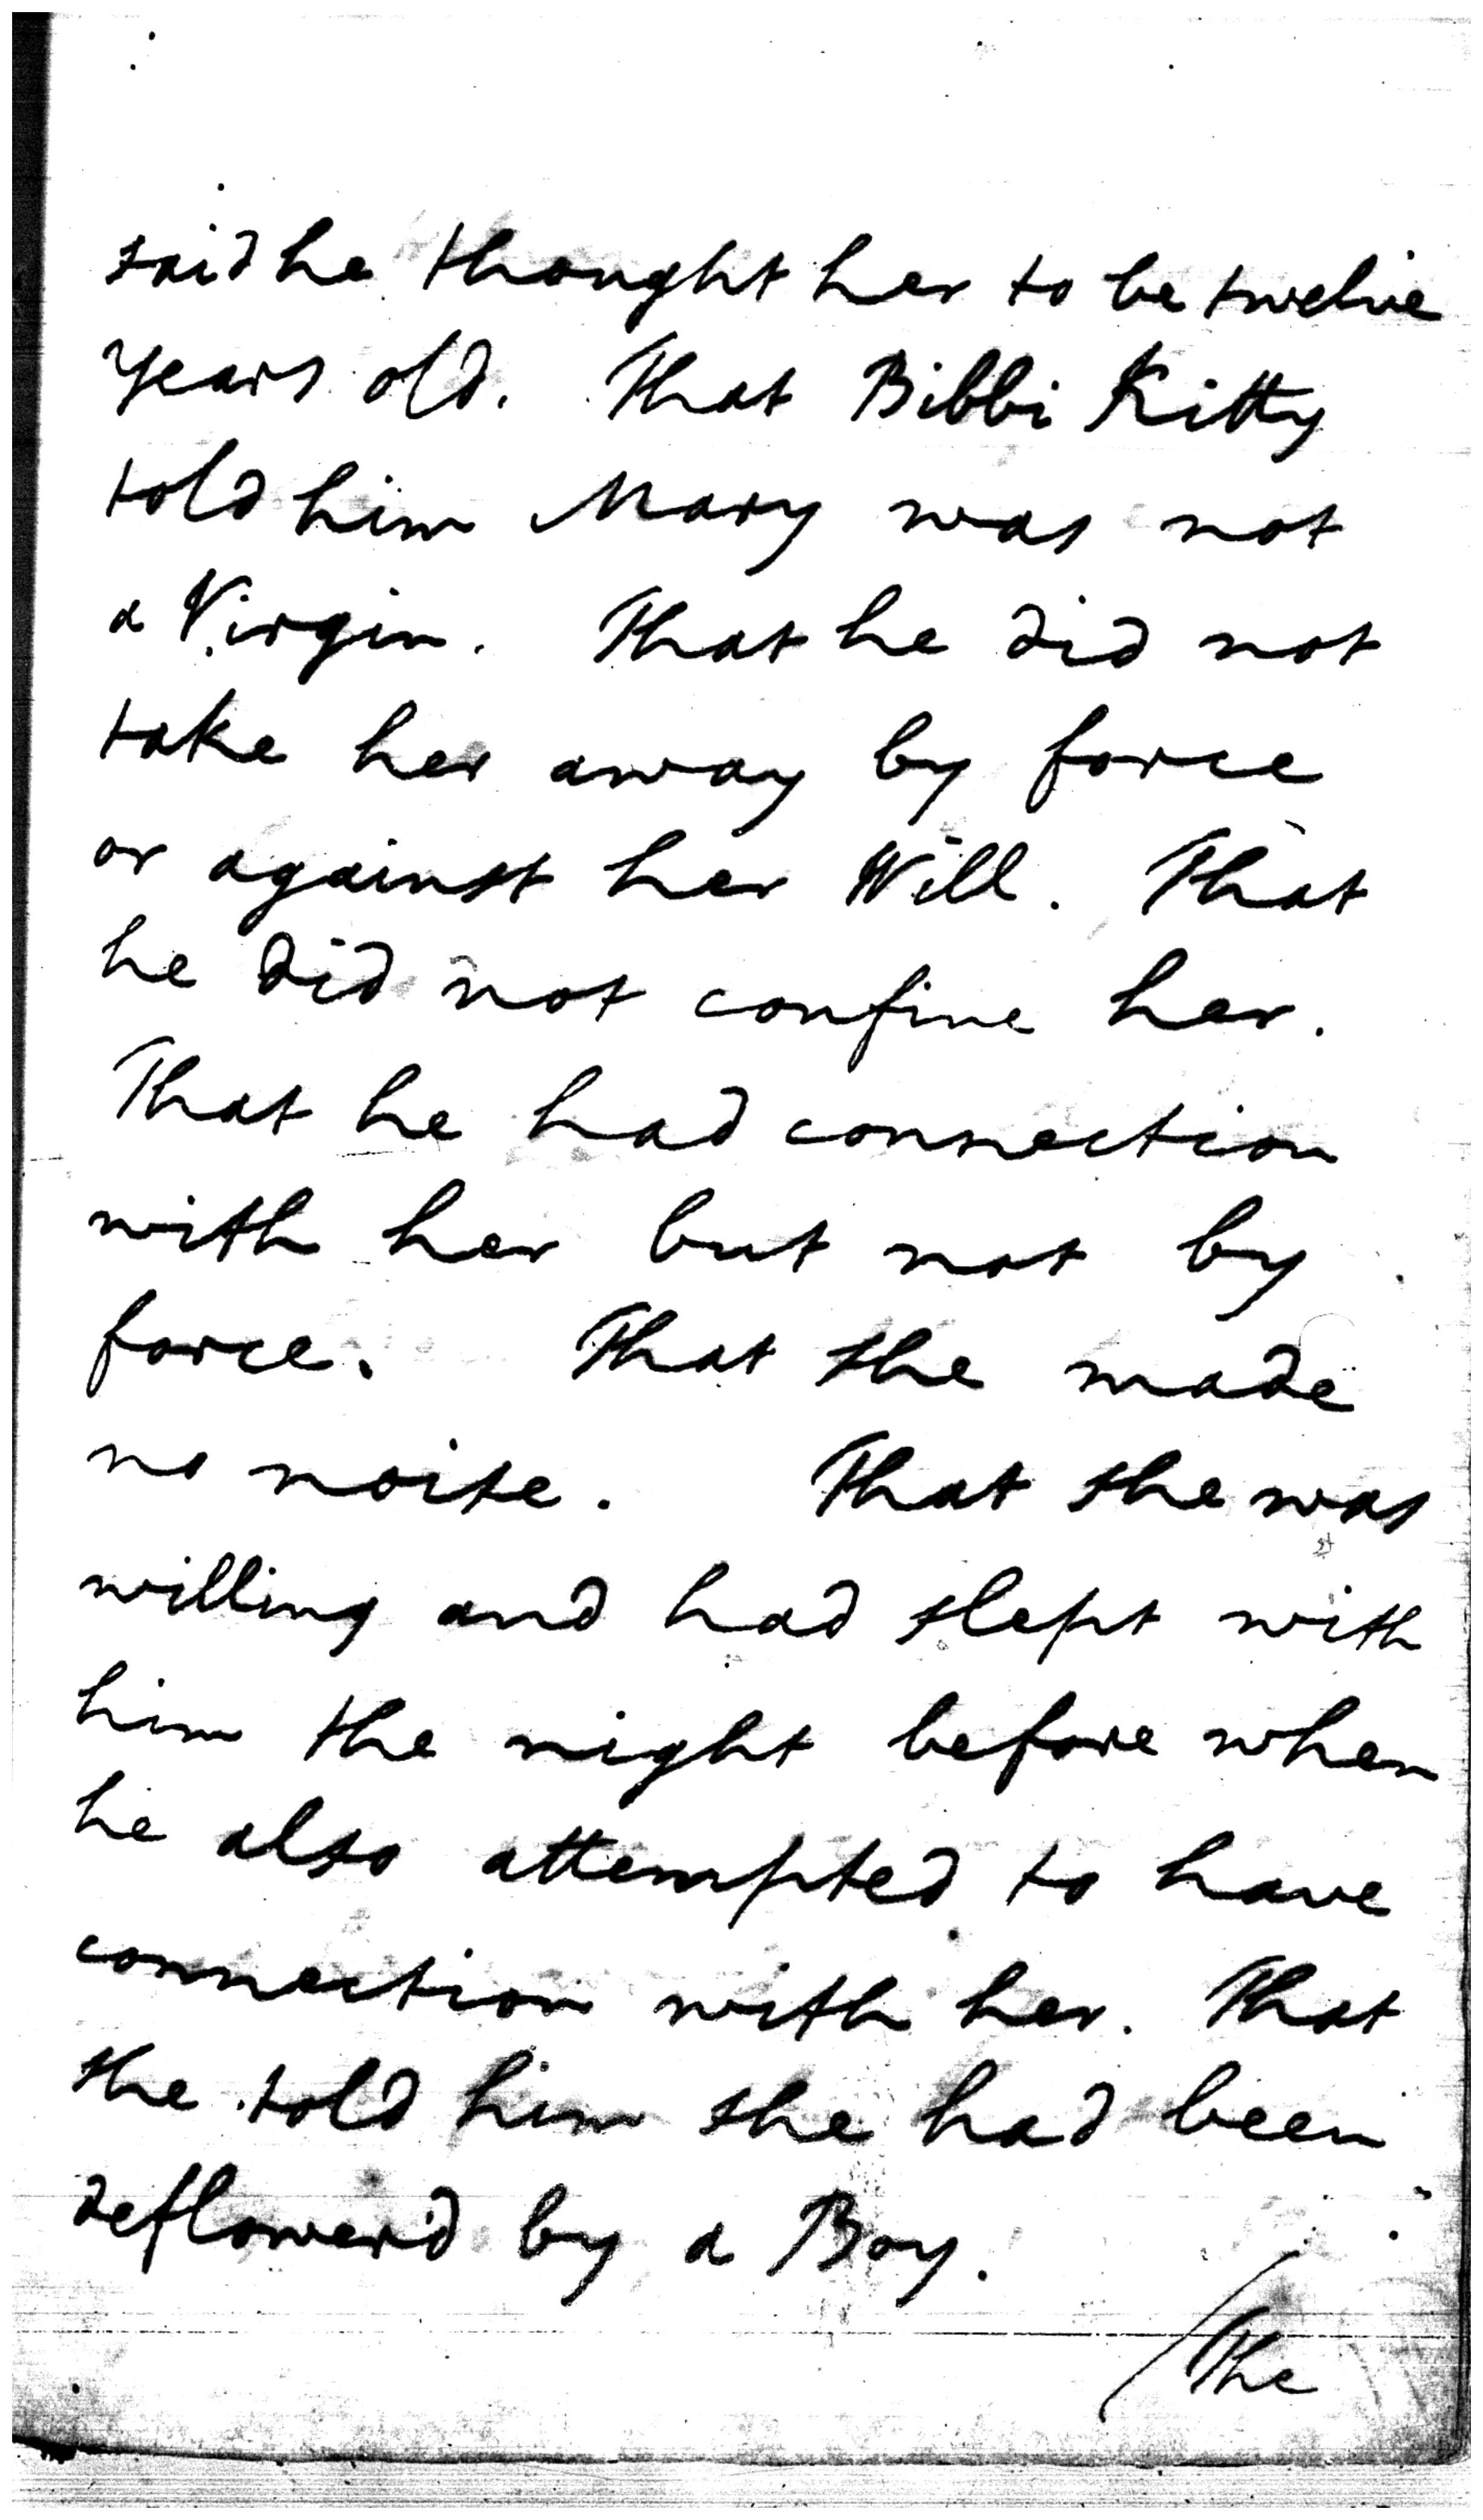 said he thought her to be twelve
years old. That Bibbi Kitty
told him Mary was not
a Virgin. That he did not
take her away by force
or against her Will. That
he did not confine her.
That he had connection
with her but not by
force. That she made
no noise. That she was
willing and had slept with
him the night before when
he also attempted to have
connection with her. That
she told him she had been
deflower'd by a Boy.
/The